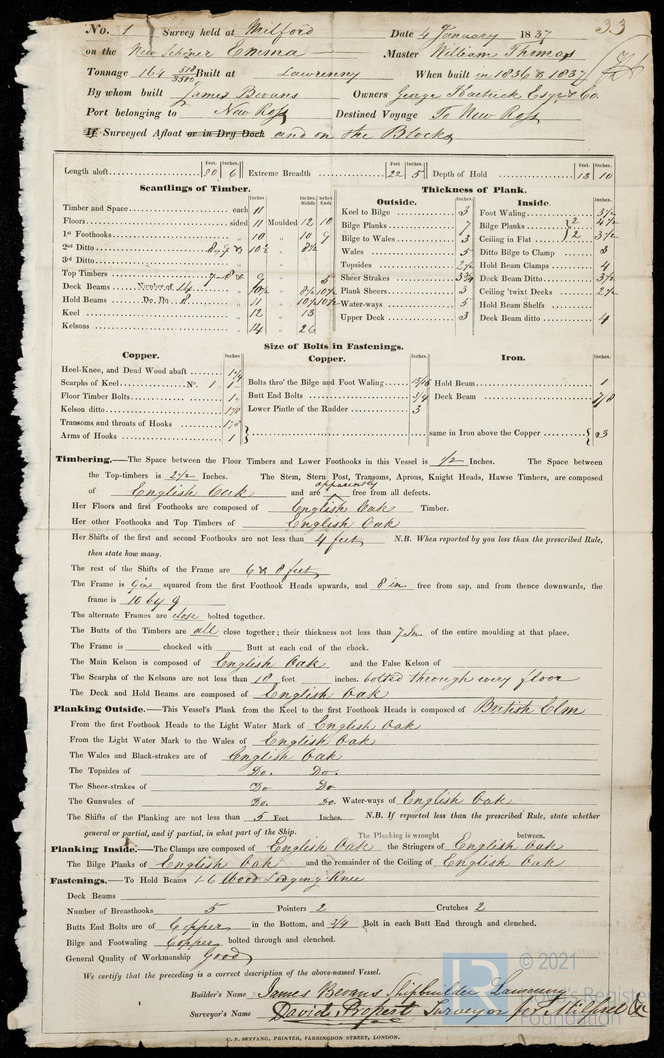 No. 1 Survey held at Milford Date 4 January 1837 33
on the New Schoner Emma Master William Thomas
Tonnage 164 Built at Lawrenny When built in 1836 & 1837
By whom built James Bevans Owners George Esqr & Co.
Port belonging to New Ross Destined Voyage To New Ross
If Surveyed Afloat or in Dry Dock and on the Blocks
Length aloft 80 Feet. 6 Inches. Extreme Breadth 22 Feet. 5 Inches. Depth of Hold 13 Feet. 10 Inches.
Scantlings of Timber. Thickness of Plank.
Outside. Inside.
Timber and Space each 11 Keel to Bilge 3 Foot Waling 3 1/2
Floors sided 11 Moulded 12 10 Bilge Planks 7 Bilge Planks 2 4 1/2
1st Foothooks 10 10 9 Bilge to Wales 3 Ceiling in Flat 2 3 1/2
2nd Ditto 10 1/2 8 1/2 Wales 5 Ditto Bilge to Clamp 3
3rd Ditto Topsides 2 1/2 Hold Beam Clamps 4
Top Timbers 7 & 8 & 9 5 Sheer Strakes 3 3/4 Deck Beam Ditto 3 1/2
Deck Beams Number of 14 10 1/2 8 1/2 10 1/2 Plank Sheers 3 Ceiling 'twixt Decks 2 1/2
Hold Beams Do. Do. 8 11 10 1/2 10 1/2 Water-ways 5 Hold Beam Shelfs
Keel 12 13 Upper Deck 3 Deck Beam ditto 4
Kelsons 14 26
Size of Bolts in Fastenings.
Copper. Copper. Iron.
Heel-Knee, and Dead Wood abaft 1 1/4
Scarphs of Keel No. 1 1 Bolts thro' the Bilge and Foot Waling 13/16 Hold Beam 1
Floor Timber Bolts 1 Butt End Bolts 3/4 Deck Beam 7/8
Kelson ditto 1 1/8 Lower Pintle of the Rudder 3
Transoms and throats of Hooks 1 1/8
Arms of Hooks 1 same in Iron above the Copper 3
Timbering.—The Space between the Floor Timbers and Lower Foothooks in this Vessel is 1/2 Inches. The Space between
the Top-timbers is 2 1/2 Inches. The Stem, Stern Post, Transoms, Aprons, Knight Heads, Hawse Timbers, are composed
of English Oak and are apparently free from all defects.
Her Floors and first Foothooks are composed of English Oak Timber.
Her other Foothooks and Top Timbers of English Oak
Her Shifts of the first and second Foothooks are not less than 4 feet N.B. When reported by you less than the prescribed Rule,
then state how many.
The rest of the Shifts of the Frame are 6 & 8 feet
The Frame is 9 in squared from the first Foothook Heads upwards, and 8 in. free from sap, and from thence downwards, the
frame is 10 by 9
The alternate Frames are close bolted together.
The Butts of the Timbers are all close together; their thickness not less than 7 In. of the entire moulding at that place.
The Frame is chocked with Butt at each end of the chock.
The Main Kelson is composed of English Oak and the False Kelson of
The Scarphs of the Kelsons are not less than 10 feet inches. bolted through every floor
The Deck and Hold Beams are composed of English Oak
Planking Outside.—This Vessel's Plank from the Keel to the first Foothook Heads is composed of British Elm
From the first Foothook Heads to the Light Water Mark of English Oak
From the Light Water Mark to the Wales of English Oak
The Wales and Black-strakes are of English Oak
The Topsides of Do. Do.
The Sheer-strakes of Do Do
The Gunwales of Do. Do. Water-ways of English Oak
The Shifts of the Planking are not less than 5 Feet Inches. N.B. If reported less than the prescribed Rule, state whether
general or partial, and if partial, in what part of the Ship. The Planking is wrought between.
Planking Inside.—The Clamps are composed of English Oak the Stringers of English Oak
The Bilge Planks of English Oak and the remainder of the Ceiling of English Oak
Fastenings.—To Hold Beams 16 Wood Lodging Knee
Deck Beams
Number of Breasthooks 5 Pointers 2 Crutches 2
Butts End Bolts are of Copper in the Bottom, and 3/4 Bolt in each Butt End through and clenched.
Bilge and Footwaling Copper bolted through and clenched.
General Quality of Workmanship Good
We certify that the preceding is a correct description of the above-named Vessel.
Builder's Name James Bevans Shipbuilder Lawrenny
Surveyor's Name David Propert Surveyor for Milford &c
C. F. SEYFANG, PRINTER, FARRINGDON STREET, LONDON.
© 2021
Lloyd's Register
Foundation